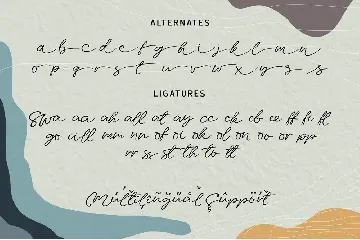 ALTERNATES
a b c d e f g h i j k l m n
o p q r s t u v w x y z s
LIGATURES
Swa aa ah all at ay cc ck cb ce ff fi fl
go ill mm nn of oi ok ol on oo or pp
rr ss st th to tt
Mültilingüal Çûppört